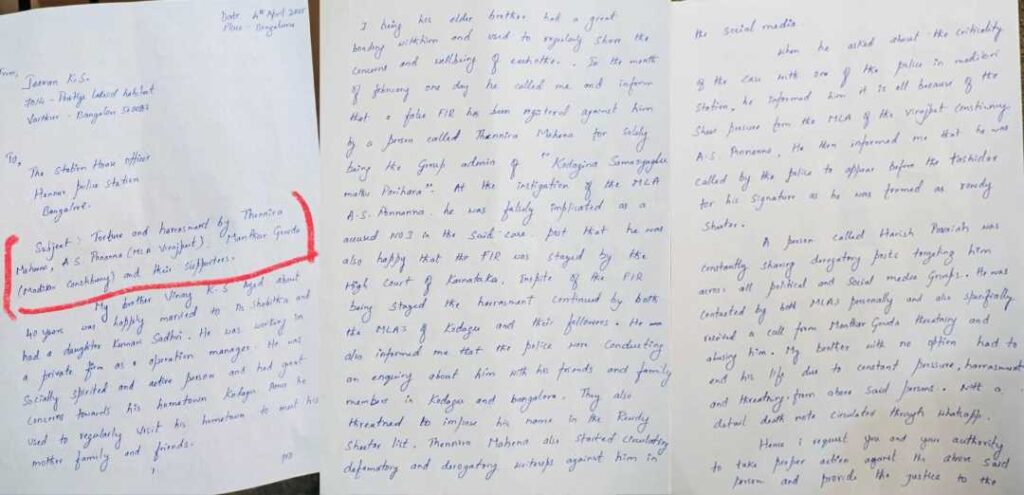 Date: 4th April 2025
Place - Bangalore
From,
Jeevan K.S.
J014 - Pratiya latest habitat
Varthur - Bangalore 560087
To,
The Station House officer
Hennur police station
Bangalore.
Subject: Torture and harrasment by Thennira
Mahena, A.S. Ponnanna (MLA Virajpet), Manthar Gowda
(Madikeri constituency) and their supporters.
My brother Vinay K.S aged about
40 years was happily married to
had a daughter Kumari Sadhri. He was working in
a private firm as a operation manager. He was
Socially spirited and active person and had great
concerns towards his hometown Kodagu. Hence he
used to regularly visit his hometown to meet his
mother family and friends.
I being his elder brother had a great
bonding with him and used to regularly share the
concerns and wellbeing of eachother. In the month
of february one day he called me and inform
that a false FIR has been registered against him
by a person called Thennira Mahena for solely
being the Group admin of "Kodagina Samasyegalu
mathu Parihara". At the instigation of the MLA
A.S. Ponnanna. he was falsly implicated as a
accused NO3 in the said case. post that he was
also happy that the FIR was stayed by the
High Court of Karnataka. inspite of the FIR
being stayed the harrasment continued by both
the MLA's of Kodagu and their followers. He was
also informed me that the police were conducting
an enquiry about him with his friends and family
members in Kodagu and bangalore. They also
threatned to impose his name in the Rowdy
Sheeter list. Thennira Mahena also started circulating
defamatory and derogatory writeups against him in
the social media.
When he asked about the criticality
of the case with one of the police in madikeri
Station, he informed him it is all because of the
Sheer pressure from the MLA of the virajpet constituency
A.S. Ponnanna. He then informed me that he was
called by the police to appear before the tashildar
for his signature as he was formed as rowdy
Sheeter.
A person called Harish Poovaiah was
constantly sharing derogatory posts targeting him
across all political and social media Groups. He was
contacted by both MLAs personally and also specifically
received a call from Manthar Gowda threatning and
abusing him. My brother with no option had to
end his life due to constant pressure, harrasment
and threatning from above said persons. With a
detail death note circulated through whatsapp.
Hence i request you and your authority
to take proper action against the above said
person and provide the justice to the